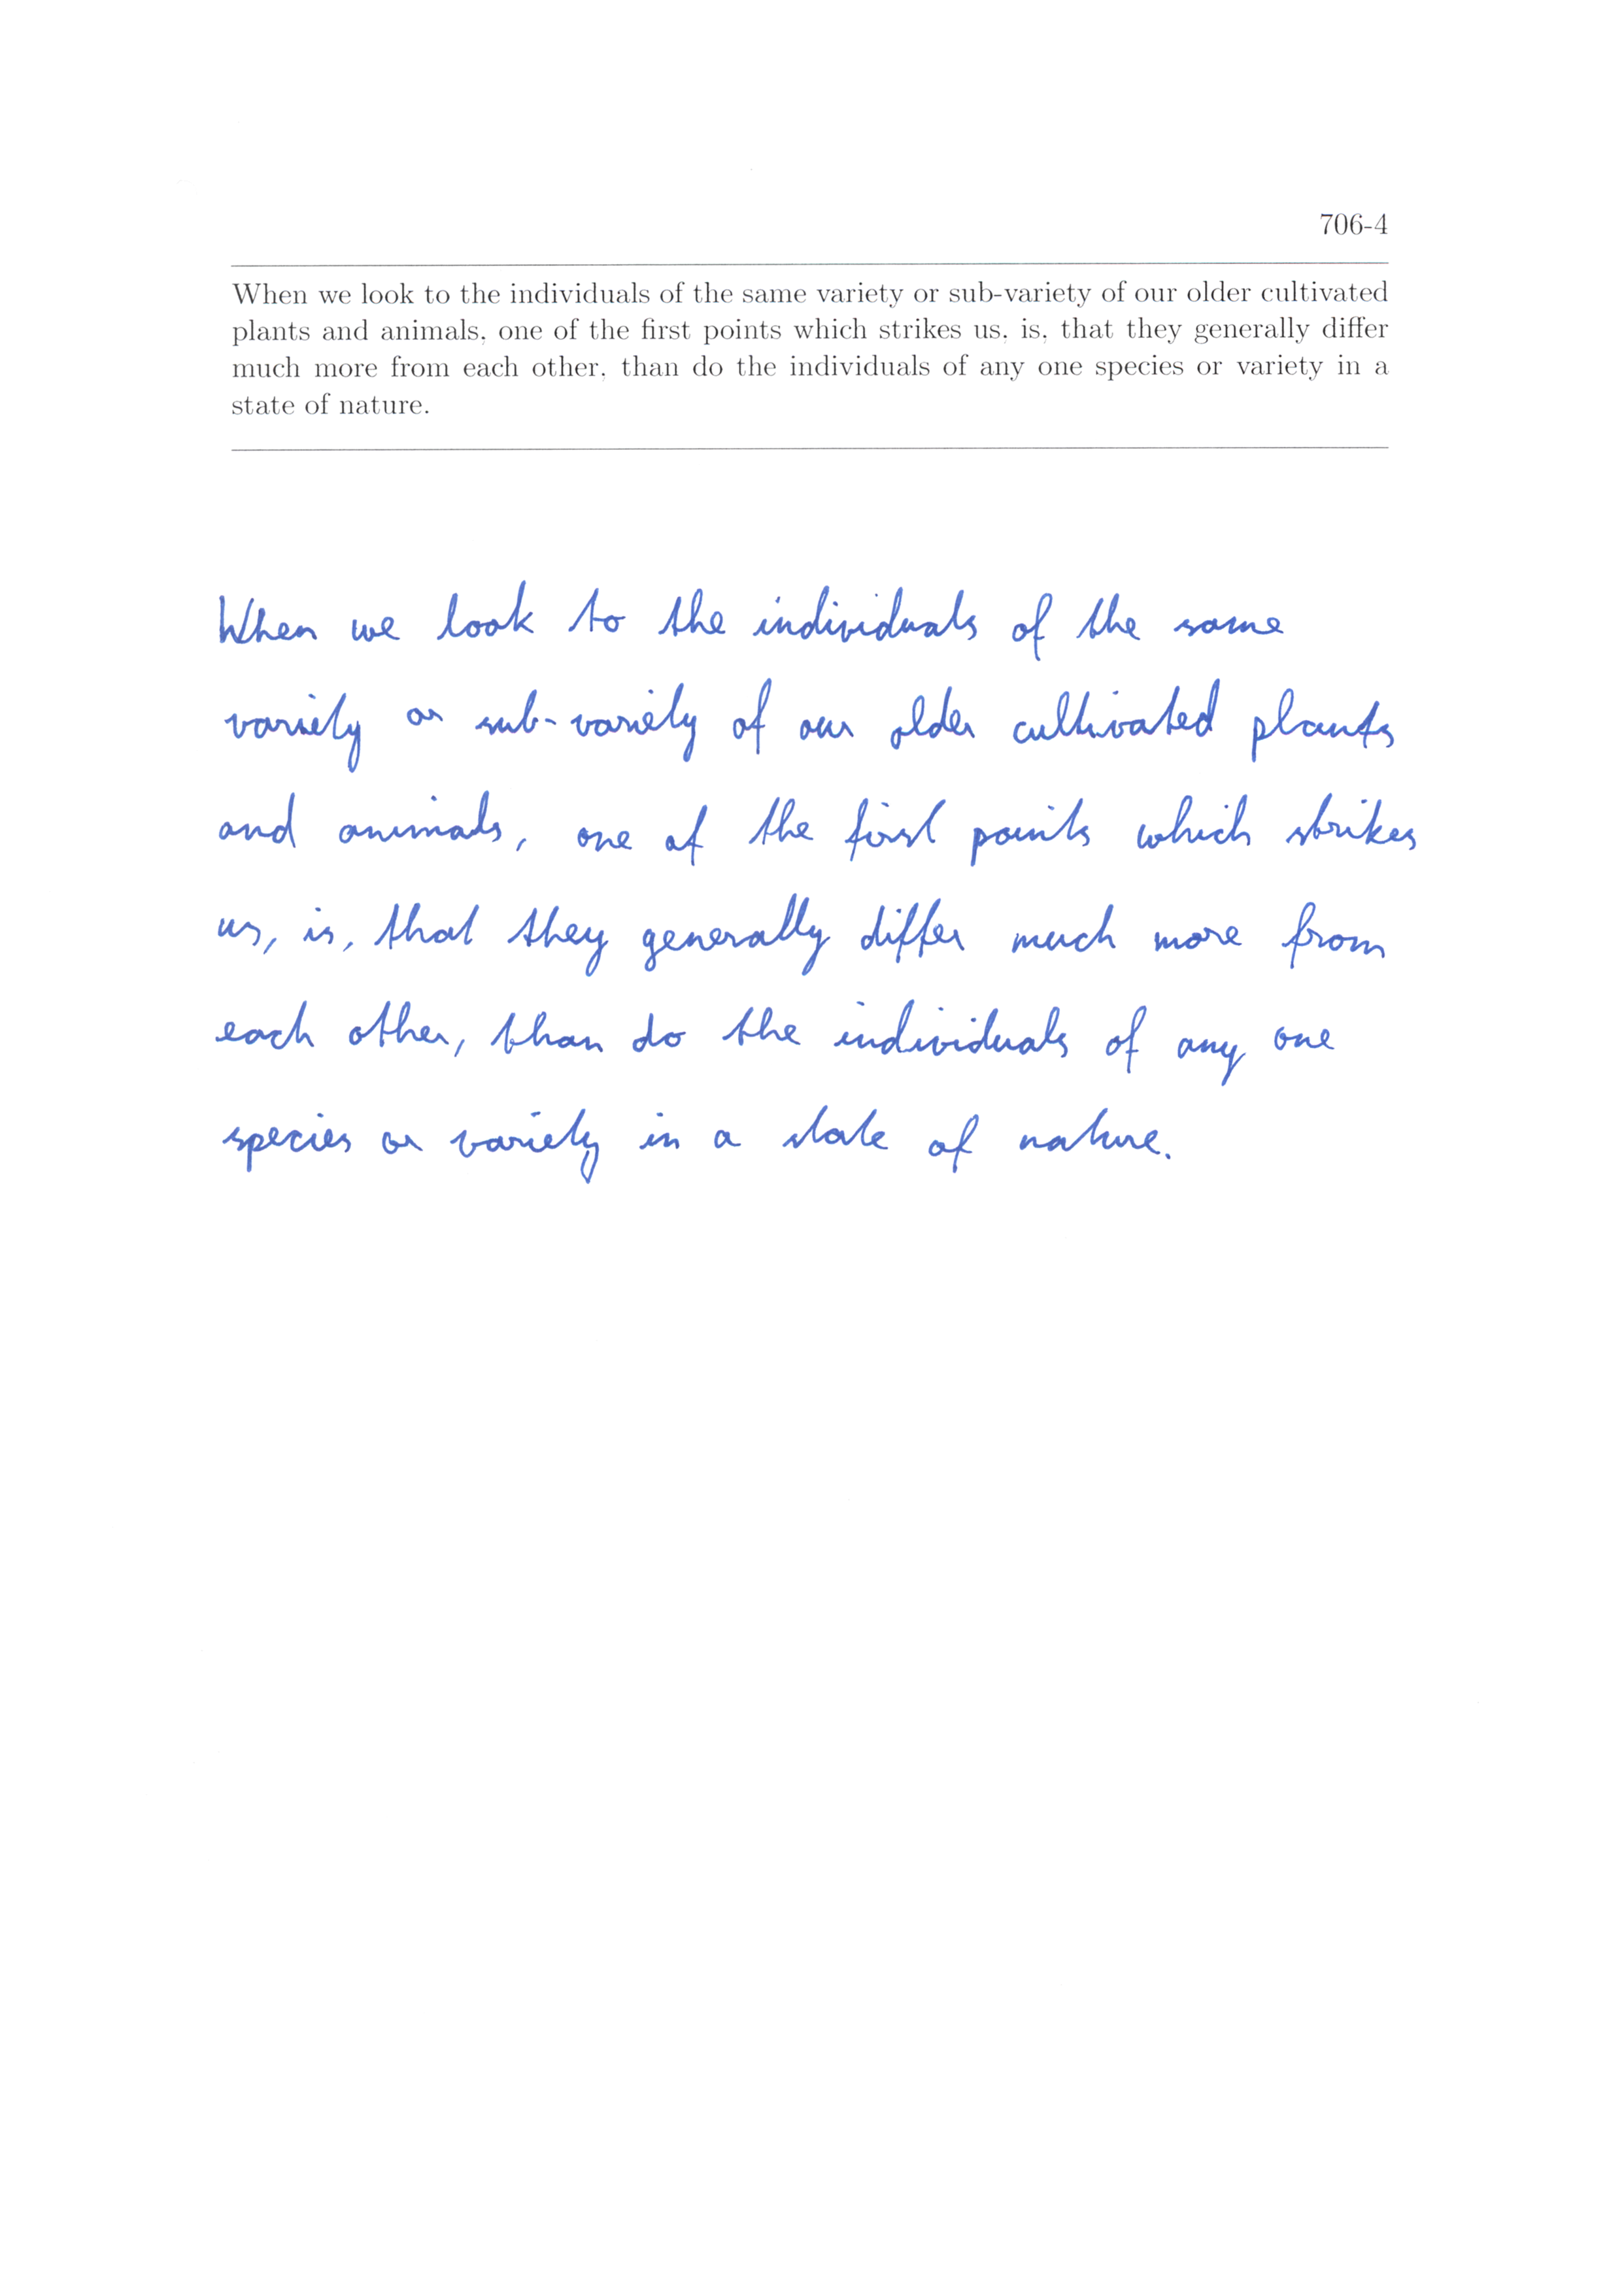 706-4
When we look to the individuals of the same variety or sub-variety of our older cultivated
plants and animals, one of the first points which strikes us, is, that they generally differ
much more from each other, than do the individuals of any one species or variety in a
state of nature.
When we look to the individuals of the same
variety or sub-variety of our older cultivated plants
and animals, one of the first points which strikes
us, is, that they generally differ much more from
each other, than do the individuals of any one
species or variety in a state of nature.